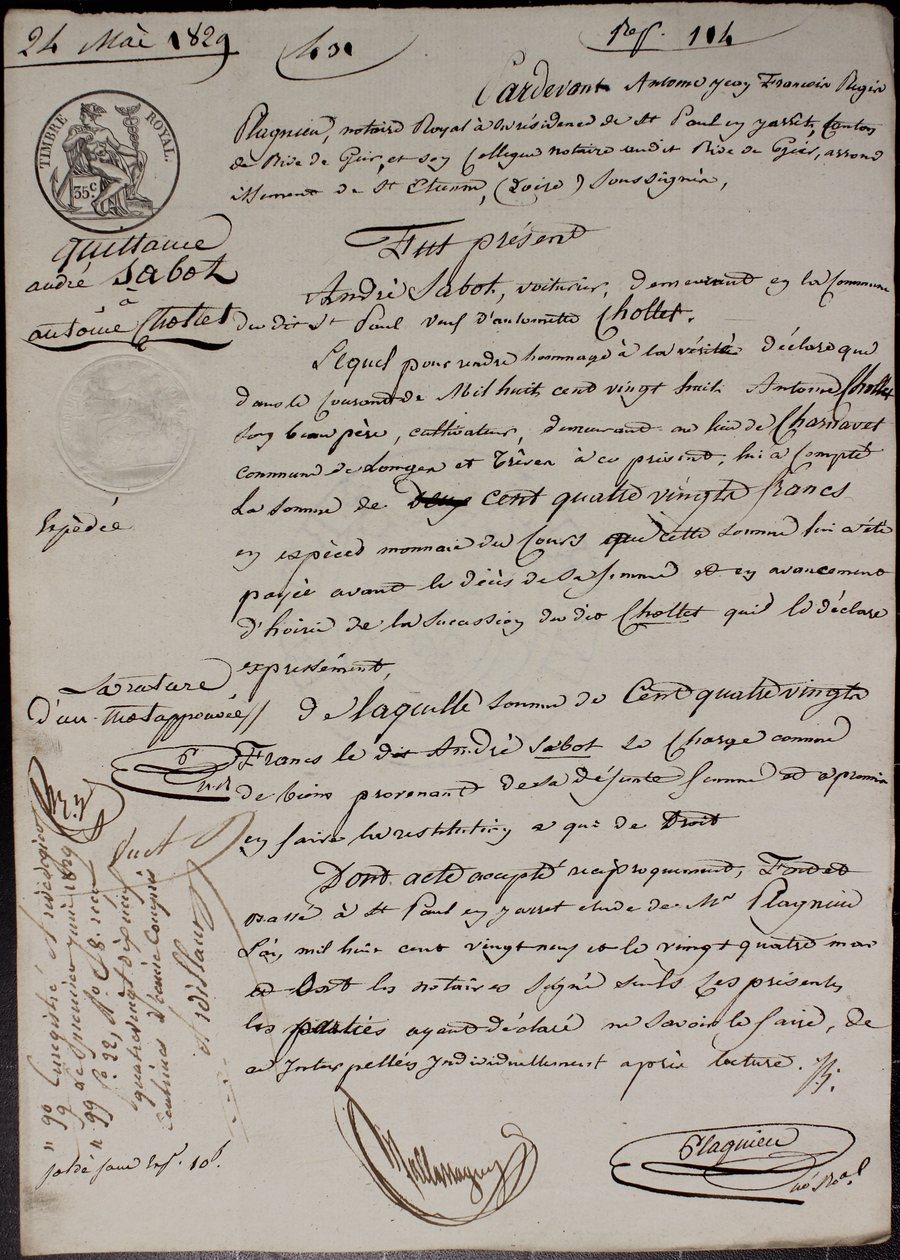 24 Mai 1829
431
Pardevant Antoine jean François Régis
Plagnieu, notaire Royal à la résidence de St Paul en jarret, Canton
de Rive de Gier, et son Collegue notaire audit Rive de Gier, arrond
issement de St Etienne, (Loire) soussignés,
TIMBRE ROYAL.
35 C
Quittance
andré Sabot
à
antoine Chollet
Fut présent
André Sabot, voiturier, demeurant en la Commune
du dit St Paul veuf d'antoinette Chollet.
Lequel pour rendre hommage à la vérité déclare que
dans le Courant de Mil huit cent vingt huit Antoine Chollet
son beau père, cultivateur, demeurant au lieu de Chardavet
commune de Longes et Trèves à ce présent, lui a compté
la somme de cent quatre vingts francs
en espèces monnaie du Cours que cette somme lui a été
payée avant le décès de sa femme et en avancement
d'hoirie de la sucession du dit Chollet quil le déclare
expressément,
Expédié
La rature
d'un mot approuvée //
de laquelle somme de Cent quatre vingts
Francs le dit André Sabot se Charge comme
de biens provenant de sa défunte femme et a promis
en faire la restitution a qui de Droit
Dont acte accepté réciproquement, Fait et
passé à St Paul en jarret etude de Me Plagnieu
L'an mil huit cent vingt neuf et le vingt quatre mai
et Ont les notaires signé seuls Les présentes
les parties ayant déclaré ne savoir le faire, de
ce Interpellées Individuellement après lecture.
Enregistré à rivedegier
le premier juin 1829
fo 22, Ro C 8. reçu
quatre vingt dix neuf
centimes dixième Compris
Plagnieu
no Roal